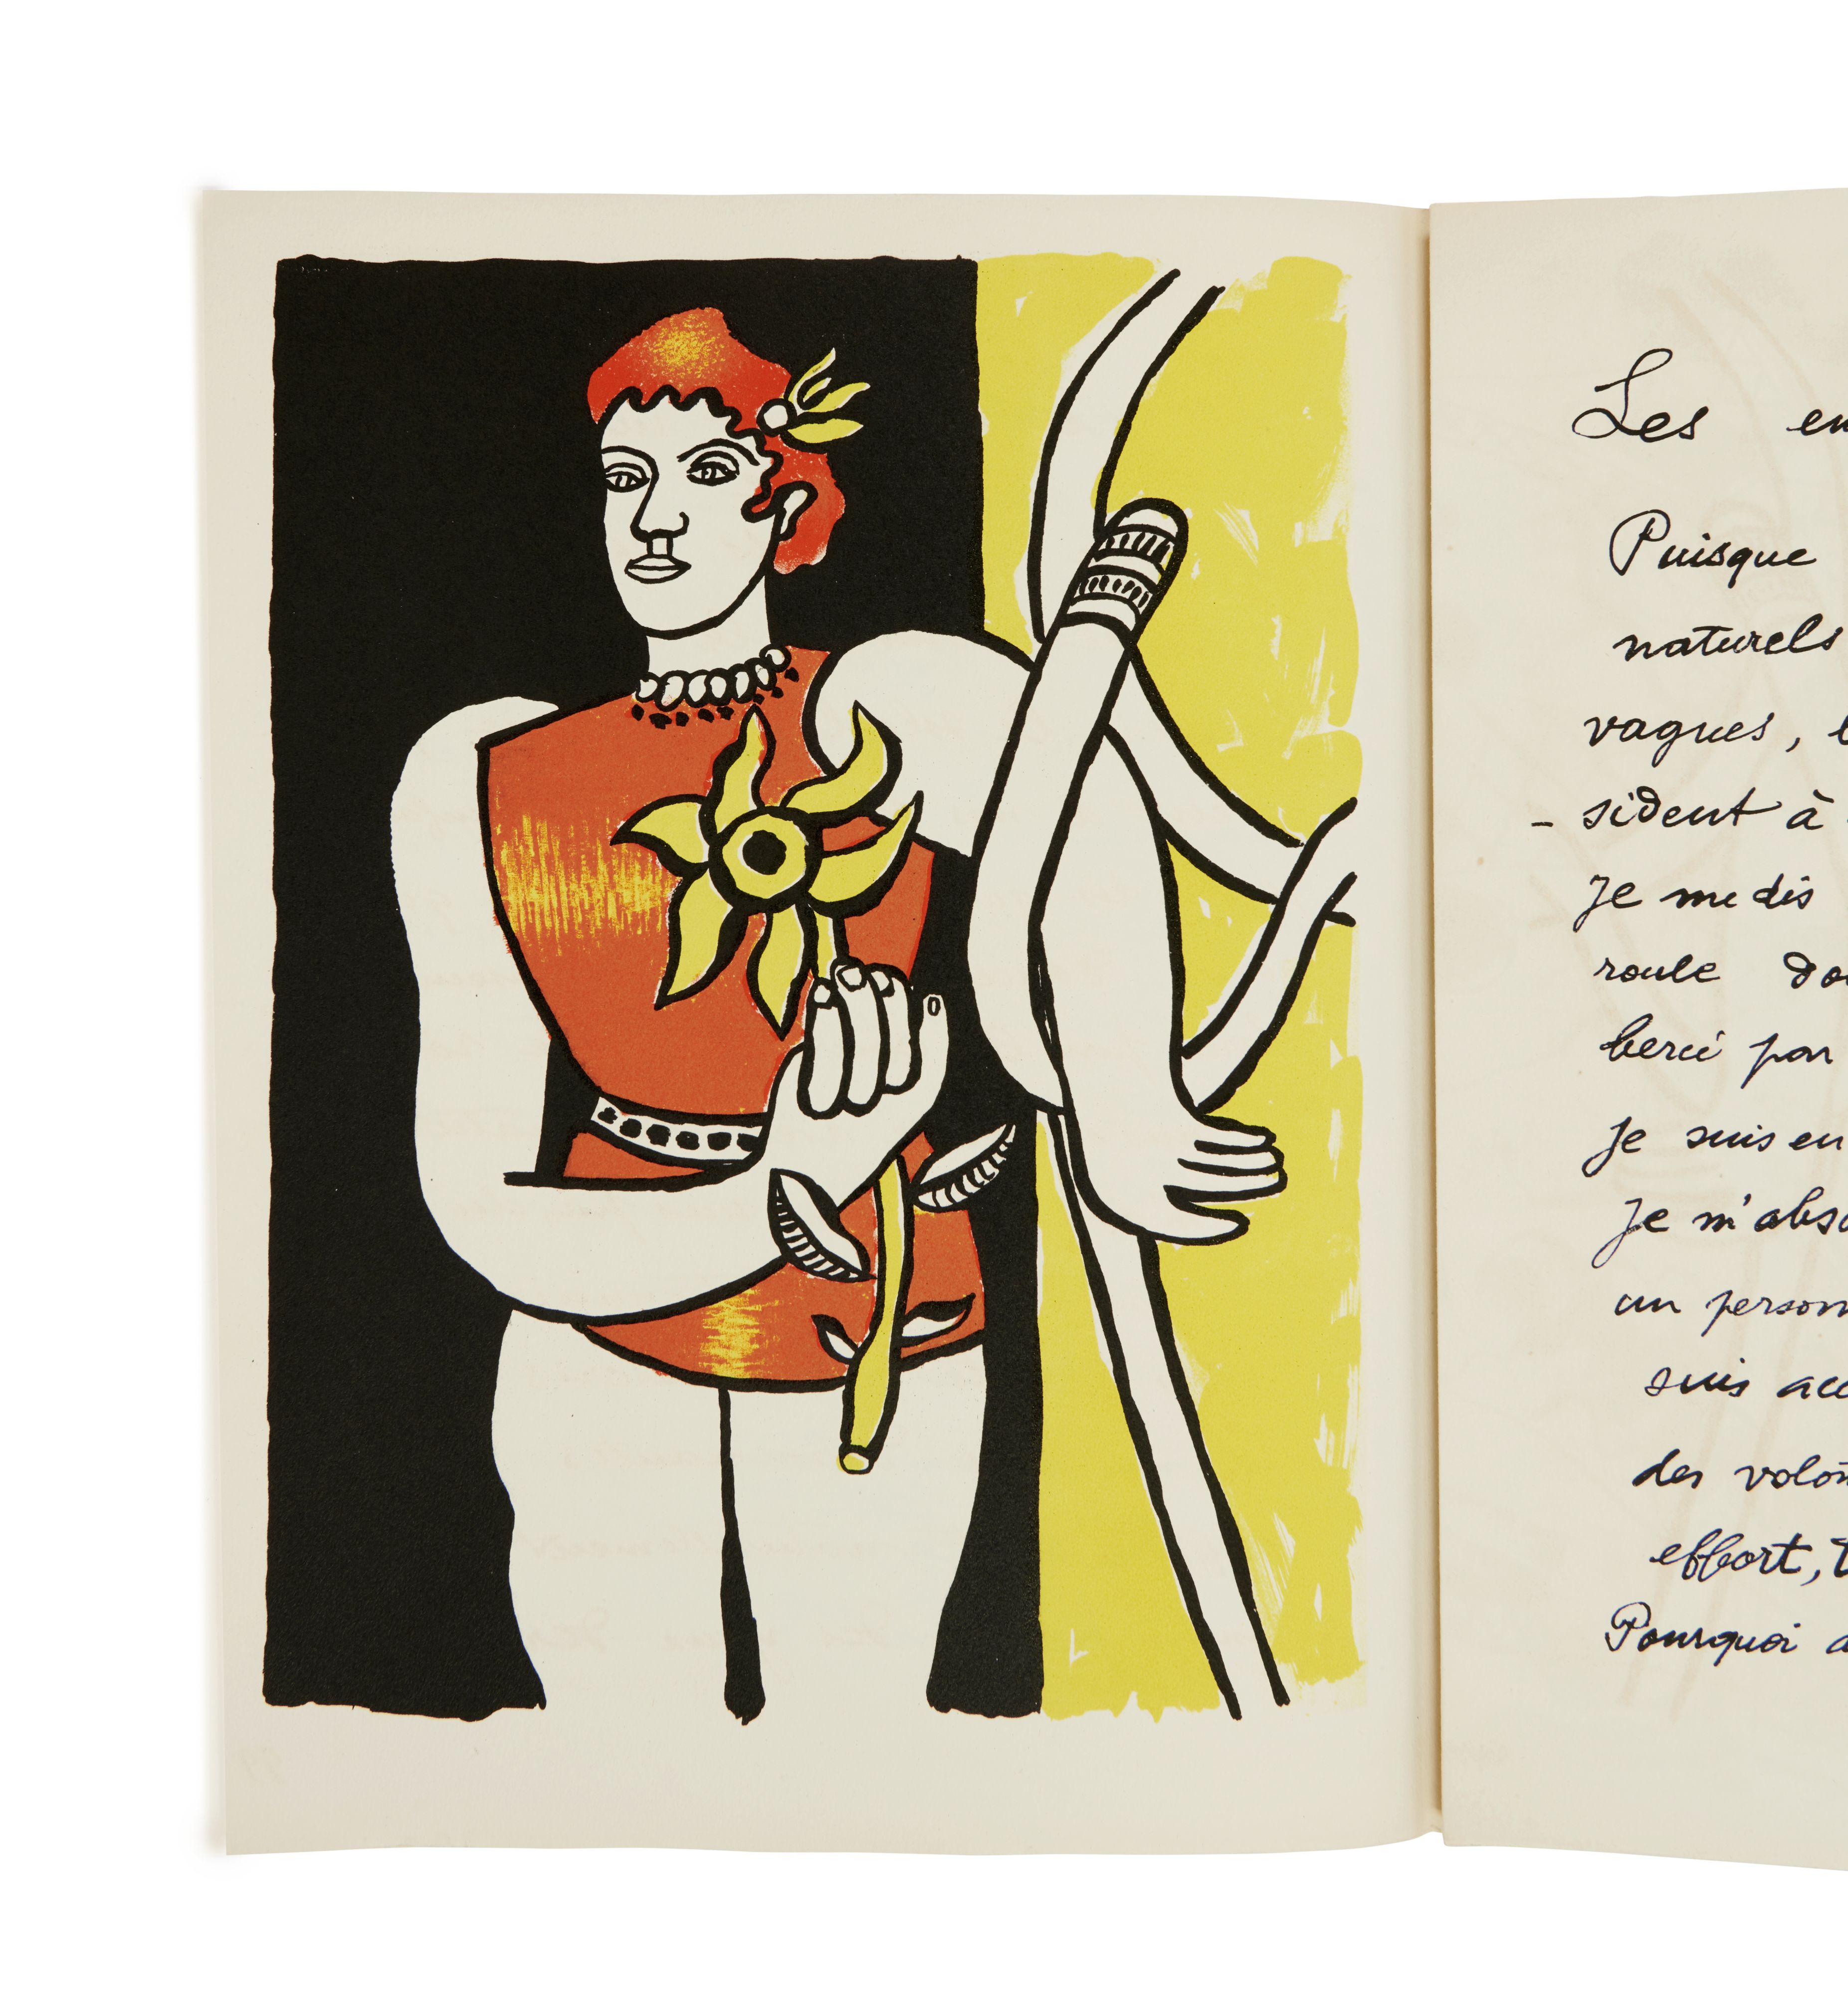 Les en
Puisque
naturels
vagues,
sident à
– Je me dis
roule dou
berci par
Je suis en
Je m'abso
un person
suis acc
des volon
effort, t
Pourquoi a